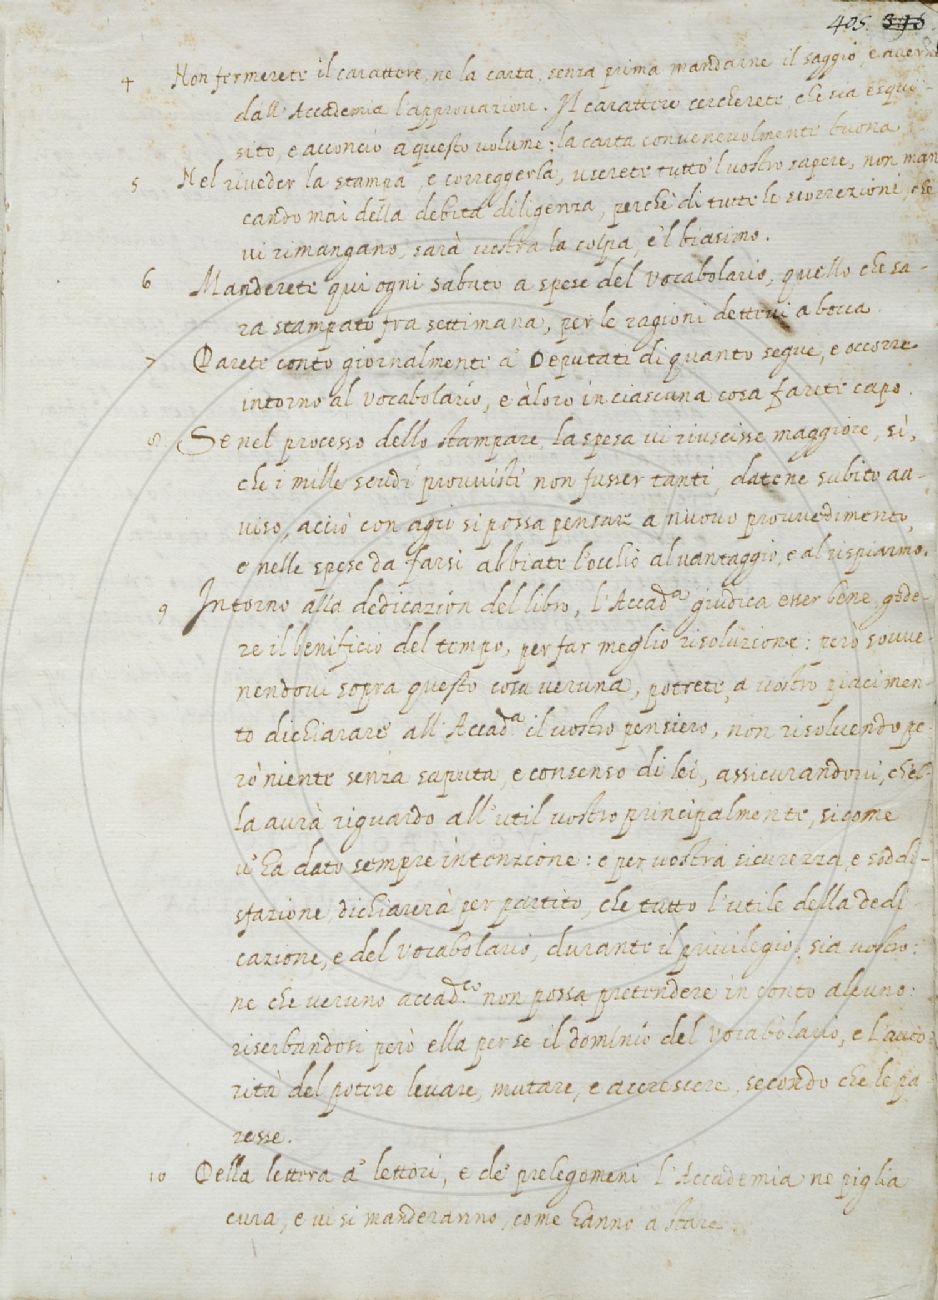 405. 396
4 Non fermerete il carattere, ne la carta, senza prima mandarne il saggio, e averne
dall' Accademia l'approuazione. Il carattere cercherete, che sia esqui-
sito, e acconcio a questo uolume: la carta conueneuolmente buona.
5 Nel riueder la stampa, e correggerla, userete tutto 'l uostro sapere, non man
cando mai della debita diligenza, perchè di tutte le scorrezioni, che
ui rimangano, sarà uostra la colpa, e 'l biasimo.
6 Manderete qui ogni sabato a spese del Vocabolario, quello che sa-
ra stampato fra settimana, per le ragioni detteui a bocca.
7 Darete conto giornalmente a' Deputati di quanto segue, e occorre
intorno al Vocabolario, e à loro in ciascuna cosa farete capo.
8 Se nel processo dello stampare, la spesa ui riuscisse maggiore, sì,
che i mille scudi prouuisti non fusser tanti, datene subito au-
uiso, acciò con agio si possa pensare a nuouo prouuedimento,
e nelle spese da farsi abbiate l'occhio al uantaggio, e al rispiarmo.
9 Intorno alla dedicazion del libro, l'Accad.a giudica esser bene, gode-
re il benificio del tempo, per far meglio risoluzione: però souue-
nendoui sopra questo cosa ueruna, potrete, a uostro piacimen-
to dichiarare all' Accad.a il uostro pensiero, non risoluendo pe-
rò niente senza saputa, e consenso di lei, assicurandoui, ch'el-
la aurà riguardo all' util uostro principalmente, sicome
u' ha dato sempre intenzione: e per uostra sicurezza, e soddi-
sfazione dichiarerà per partito, che tutto l'utile della dedi-
cazione, e del Vocabolario, durante il priuilegio, sia uostro:
ne che ueruno accad.co non possa pretendere in conto alcuno:
riserbandosi però ella per se il dominio del Vocabolario, e l'auto-
rità del potere leuare, mutare, e accrescere, secondo che le pa-
resse.
10 Della lettera a' lettori, e de' prelegomeni l'Accademia ne piglia
cura, e ui si manderanno, come hanno a stare.